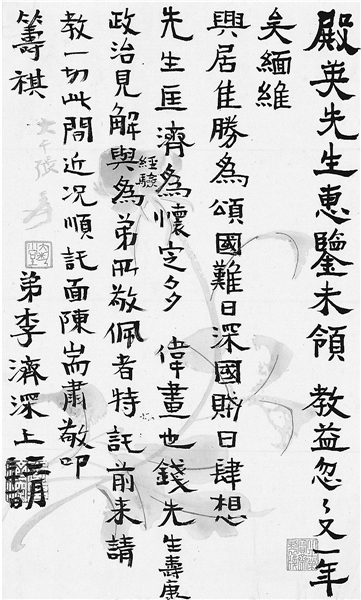 殿英先生惠鑒未領 教益忽〻又一年
矣緬維
興居佳勝為頌國難日深國賊日肆想
先生匡濟為懷定多 偉畫也錢先生壽康
政治見解與經驗為弟所敬佩者特託前来請
教一切此間近况順託面陳耑肅敬叩
籌祺
弟李濟深上 三月
大千張爰